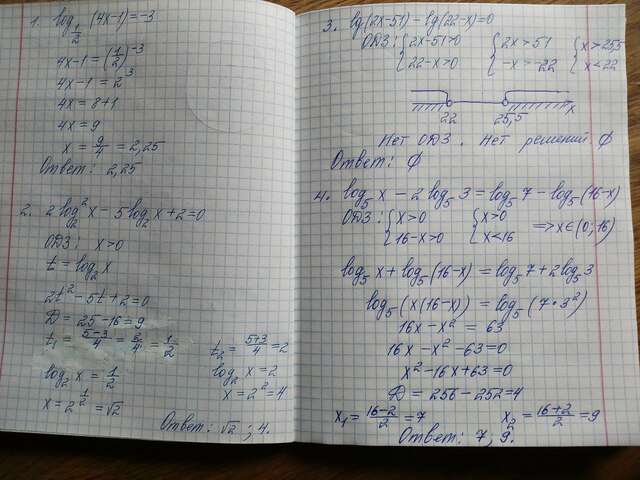 1. log_{1/2} (4x-1) = -3
4x-1 = (1/2)^{-3}
4x-1 = 2^3
4x = 8+1
4x = 9
x = 9/4 = 2,25
Ответ: 2,25
2. 2log_2^2 x - 5log_2 x + 2 = 0
ОДЗ: x>0
t = log_2 x
2t^2 - 5t + 2 = 0
D = 25-16 = 9
t_1 = (5-3)/4 = 2/4 = 1/2 t_2 = (5+3)/4 = 2
log_2 x = 1/2 log_2 x = 2
x = 2^{1/2} = √2 x = 2^2 = 4
Ответ: √2; 4.
3. lg(2x-51) - lg(22-x) = 0
ОДЗ: { 2x-51>0 { 2x>51 { x>25,5
{ 22-x>0 { -x>-22 { x<22
22 25,5 x
Нет ОДЗ. Нет решений ∅
Ответ: ∅
4. log_5 x - 2 log_5 3 = log_5 7 - log_5 (16-x)
ОДЗ: { x>0 { x>0
{ 16-x>0 { x<16 => x∈(0; 16)
log_5 x + log_5 (16-x) = log_5 7 + 2log_5 3
log_5 (x(16-x)) = log_5 (7·3^2)
16x - x^2 = 63
16x - x^2 - 63 = 0
x^2 - 16x + 63 = 0
D = 256 - 252 = 4
x_1 = (16-2)/2 = 7 x_2 = (16+2)/2 = 9
Ответ: 7; 9.